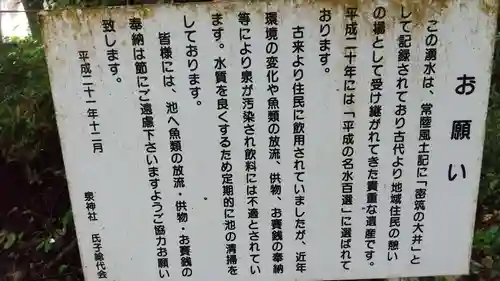 お願い
この湧水は、常陸風土記に「密筑の大井」と
して記録されており古代より地域住民の憩い
の場として受け継がれてきた貴重な遺産です。
平成二十年には「平成の名水百選」に選ばれて
おります。
古来より住民に飲用されていましたが、近年
環境の変化や魚類の放流、供物、お賽銭の奉納
等により泉が汚染され飲料には不適とされてい
ます。水質を良くするため定期的に池の清掃を
しております。
皆様には、池へ魚類の放流・供物・お賽銭の
奉納は節にご遠慮下さいますようご協力お願い
致します。
平成二十一年十二月
泉神社 氏子総代会